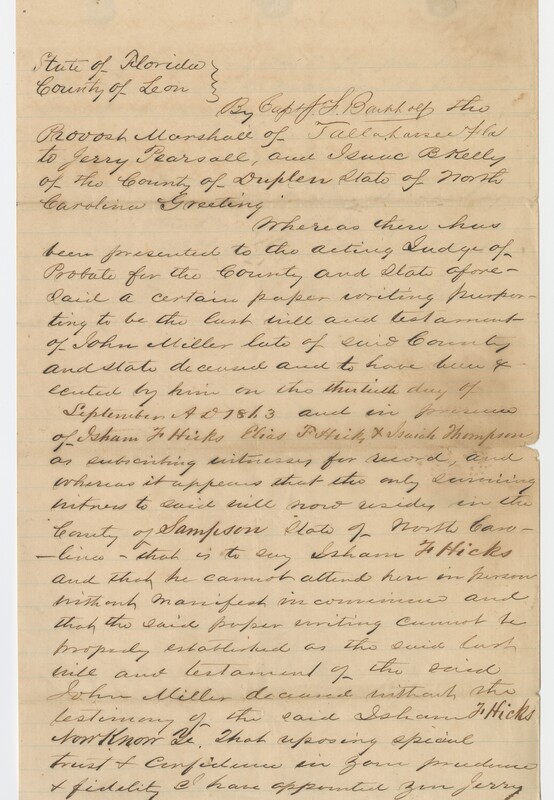 State of Florida
County of Leon
By Capt J. F. the
Provost Marshall of Tallahassee Fla
to Jerry Pearsall, and Isaac B Kelly
of the County of Duplen State of North
Carolina Greeting
Whereas there has
been presented to the acting Judge of
Probate for the County and State afore-
said a certain paper writing purpor-
ting to be the last will and testament
of John Miller late of said County
and State deceased and to have been Ex-
ecuted by him on the thirtieth day of
September A D 1863 and in presence
of Isham F Hicks Elias F Hicks & Isaiah Thompson
as subscribing witnesses for record, and
whereas it appears that the only surviving
witness to said will now resides in the
County of Sampson State of North Caro-
-lina - that is to say Isham F Hicks
and that he cannot attend here in person
without manifest inconvinience and
that the said paper writing cannot be
properly established as the said last
will and testament of the said
John Miller deceased without the
testimony of the said Isham F Hicks
Now Know Ye, That reposing special
trust & confidence in your prudence
& fidelity I have appointed you Jerry